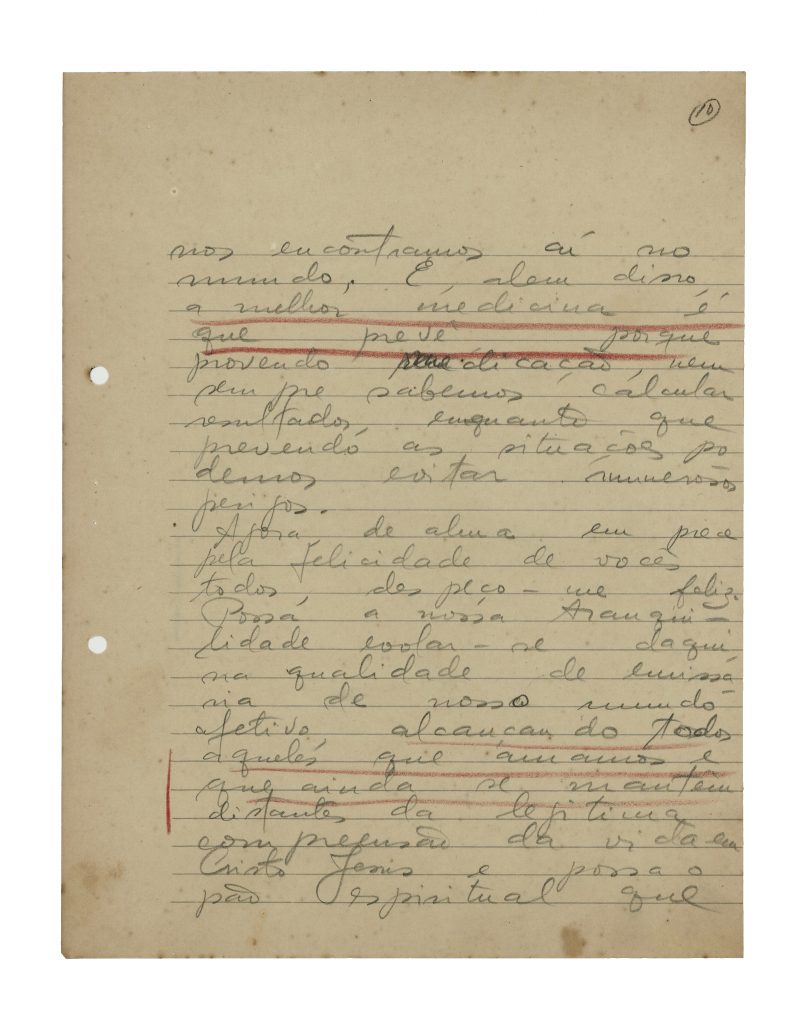 10
nos encontramos aí no
mundo. E, alem disso,
a melhor medicina é
que prevê porque
provendo medicação, nem
sempre sabemos calcular
resultados, enquanto que
prevendo as situações po
demos evitar inumerosos
perigos.
Agora, de alma em prece
pela felicidade de vocês
todos, despeço-me feliz.
Possa a nossa tranqui-
lidade evolar-se daqui
na qualidade de emissá
ria de nosso mundo
afetivo, alcançando todos
aqueles que amamos e
que ainda se mantêm
distantes da legitima
compreensão da vida em
Cristo Jesus e possa o
pão espiritual que